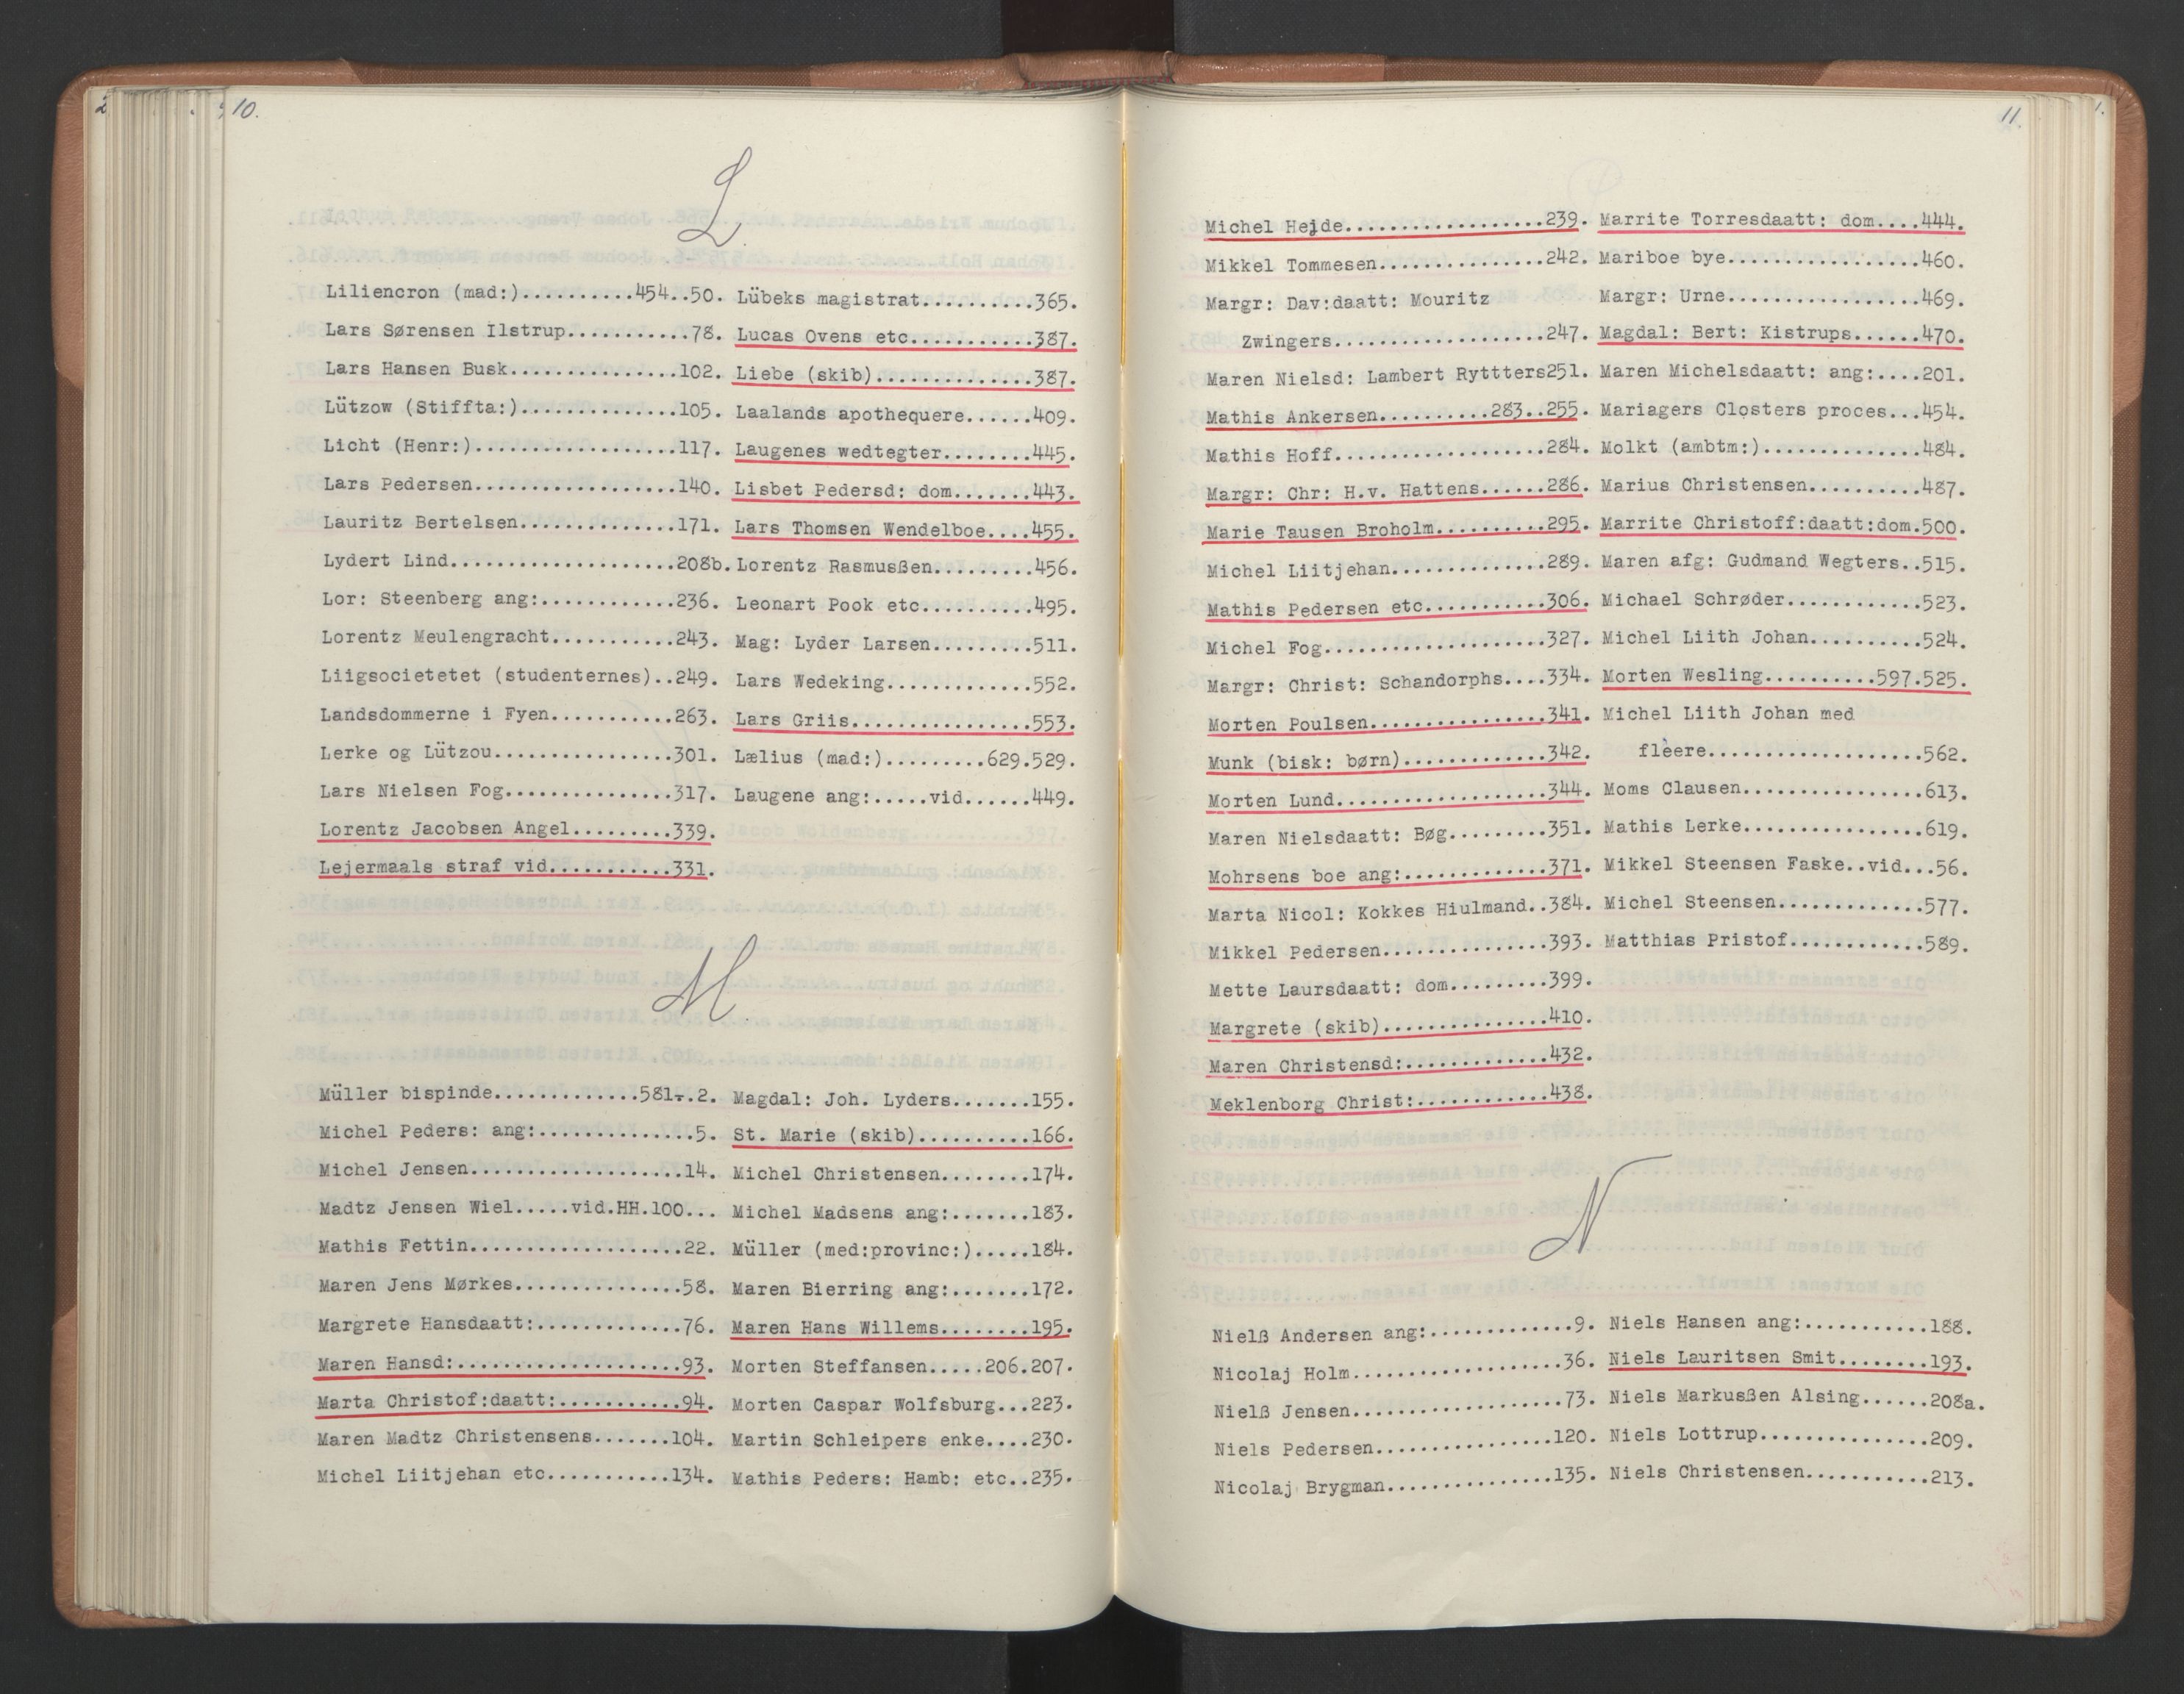 10.
L.
Liliencron (mad:)..........454..50.
Lars Sørensen Ilstrup...........78.
Lars Hansen Busk...............102.
Lützow (Stiffta:)..............105.
Licht (Henr:)..................117.
Lars Pedersen..................140.
Lauritz Bertelsen..............171.
Lydert Lind....................208b.
Lor: Steenberg ang:............236.
Lorentz Meulengracht...........243.
Liigsocietetet (studenternes)..249.
Landsdommerne i Fyen...........263.
Lerke og Lützou................301.
Lars Nielsen Fog...............317.
Lorentz Jacobsen Angel.........339.
Lejermaals straf vid...........331.
Lübeks magistrat..........365.
Lucas Ovens etc...........387.
Liebe (skib)..............387.
Laalands apothequere......409.
Laugenes wedtegter........445.
Lisbet Pedersd: dom.......443.
Lars Thomsen Wendelboe....455.
Lorentz Rasmusßen.........456.
Leonart Pook etc..........495.
Mag: Lyder Larsen.........511.
Lars Wedeking.............552.
Lars Griis................553.
Lælius (mad:).........629.529.
Laugene ang:.....vid......449.
M.
Müller bispinde.............581-.2.
Michel Peders: ang:..............5.
Michel Jensen...................14.
Madtz Jensen Wiel.....vid.HH.100...
Mathis Fettin...................22.
Maren Jens Mørkes...............58.
Margrete Hansdaatt:.............76.
Maren Hansd:....................93.
Marta Christof:daatt:...........94.
Maren Madtz Christensens.......104.
Michel Liitjehan etc...........134.
Magdal: Joh. Lyders.......155.
St. Marie (skib)..........166.
Michel Christensen........174.
Michel Madsens ang:.......183.
Müller (med:provinc:).....184.
Maren Bierring ang:.......172.
Maren Hans Willems........195.
Morten Steffansen.....206.207.
Morten Caspar Wolfsburg...223.
Martin Schleipers enke....230.
Mathis Peders: Hamb: etc..235.
11.
Michel Hejde..................239.
Mikkel Tommesen...............242.
Margr: Dav:daatt: Mouritz
Zwingers...................247.
Maren Nielsd: Lambert Ryttters251.
Mathis Ankersen..........283..255.
Mathis Hoff...................284.
Margr: Chr: H.v. Hattens......286.
Marie Tausen Broholm..........295.
Michel Liitjehan..............289.
Mathis Pedersen etc...........306.
Michel Fog....................327.
Margr: Christ: Schandorphs....334.
Morten Poulsen................341.
Munk (bisk: børn).............342.
Morten Lund...................344.
Maren Nielsdaatt: Bøg.........351.
Mohrsens boe ang:.............371.
Marta Nicol: Kokkes Hiulmand..384.
Mikkel Pedersen...............393.
Mette Laursdaatt: dom.........399.
Margrete (skib)...............410.
Maren Christensd:.............432.
Meklenborg Christ:............438.
Marrite Torresdaatt: dom....444.
Mariboe bye.................460.
Margr: Urne.................469.
Magdal: Bert: Kistrups......470.
Maren Michelsdaatt: ang:....201.
Mariagers Closters proces...454.
Molkt (ambtm:)..............484.
Marius Christensen..........487.
Marrite Christoff:daatt:dom.500.
Maren afg: Gudmand Wegters..515.
Michael Schrøder............523.
Michel Liith Johan..........524.
Morten Wesling..........597.525.
Michel Liith Johan med
fleere...................562.
Moms Clausen................613.
Mathis Lerke................619.
Mikkel Steensen Faske..vid...56.
Michel Steensen.............577.
Matthias Pristof............589.
N
Nielß Andersen ang:.............9.
Nicolaj Holm...................36.
Nielß Jensen...................73.
Niels Pedersen................120.
Nicolaj Brygman...............135.
Niels Hansen ang:...........188.
Niels Lauritsen Smit........193.
Niels Markusßen Alsing......208a.
Niels Lottrup...............209.
Niels Christensen...........213.